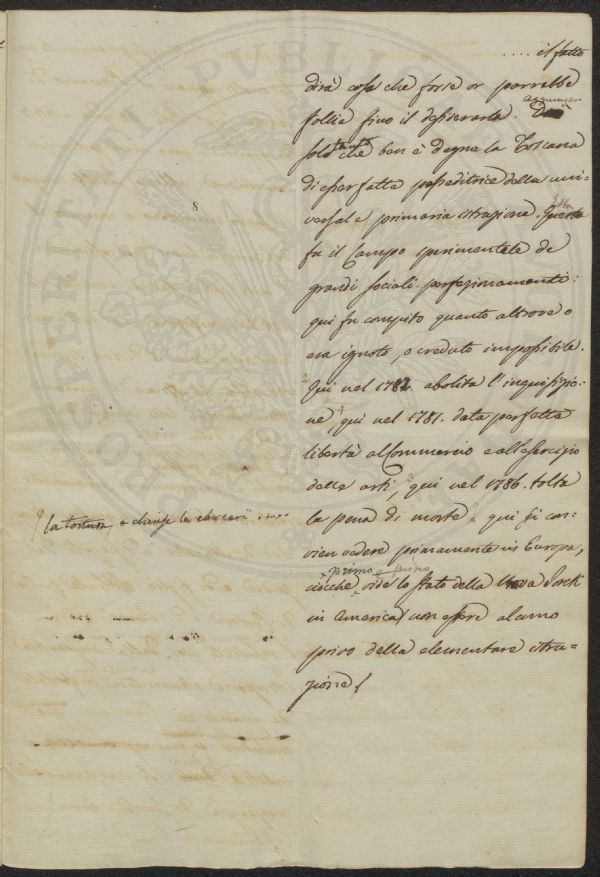 .... il fatto
dirà cosa che forse or parrebbe
follia fino il desiderarla. aggiunger
solo tanto che ben è degna la Toscana
di esser fatta posseditrice della uni-
versale primaria istruzione. Questa
fu il Campo sperimentale de
grandi sociali perfezionamenti:
qui fu compito quanto altrove o
era ignoto, o creduto impossibile.
2 Qui nel 1782. abolita l'inquisizio-
ne, 1 qui nel 1781. data perfetta
libertà al Commercio e all'esercizio
delle arti, 3 qui nel 1786. tolta
la pena di morte, qui si con-
vien vedere primamente in Europa,
ciocchè primo vide lo stato della Nova Jorck
in America) non essere alcuno
privo della elementare istru-
zione!
la tortura, e chiuse le carceri ....
8
PUBLIC
PROSPERITATI